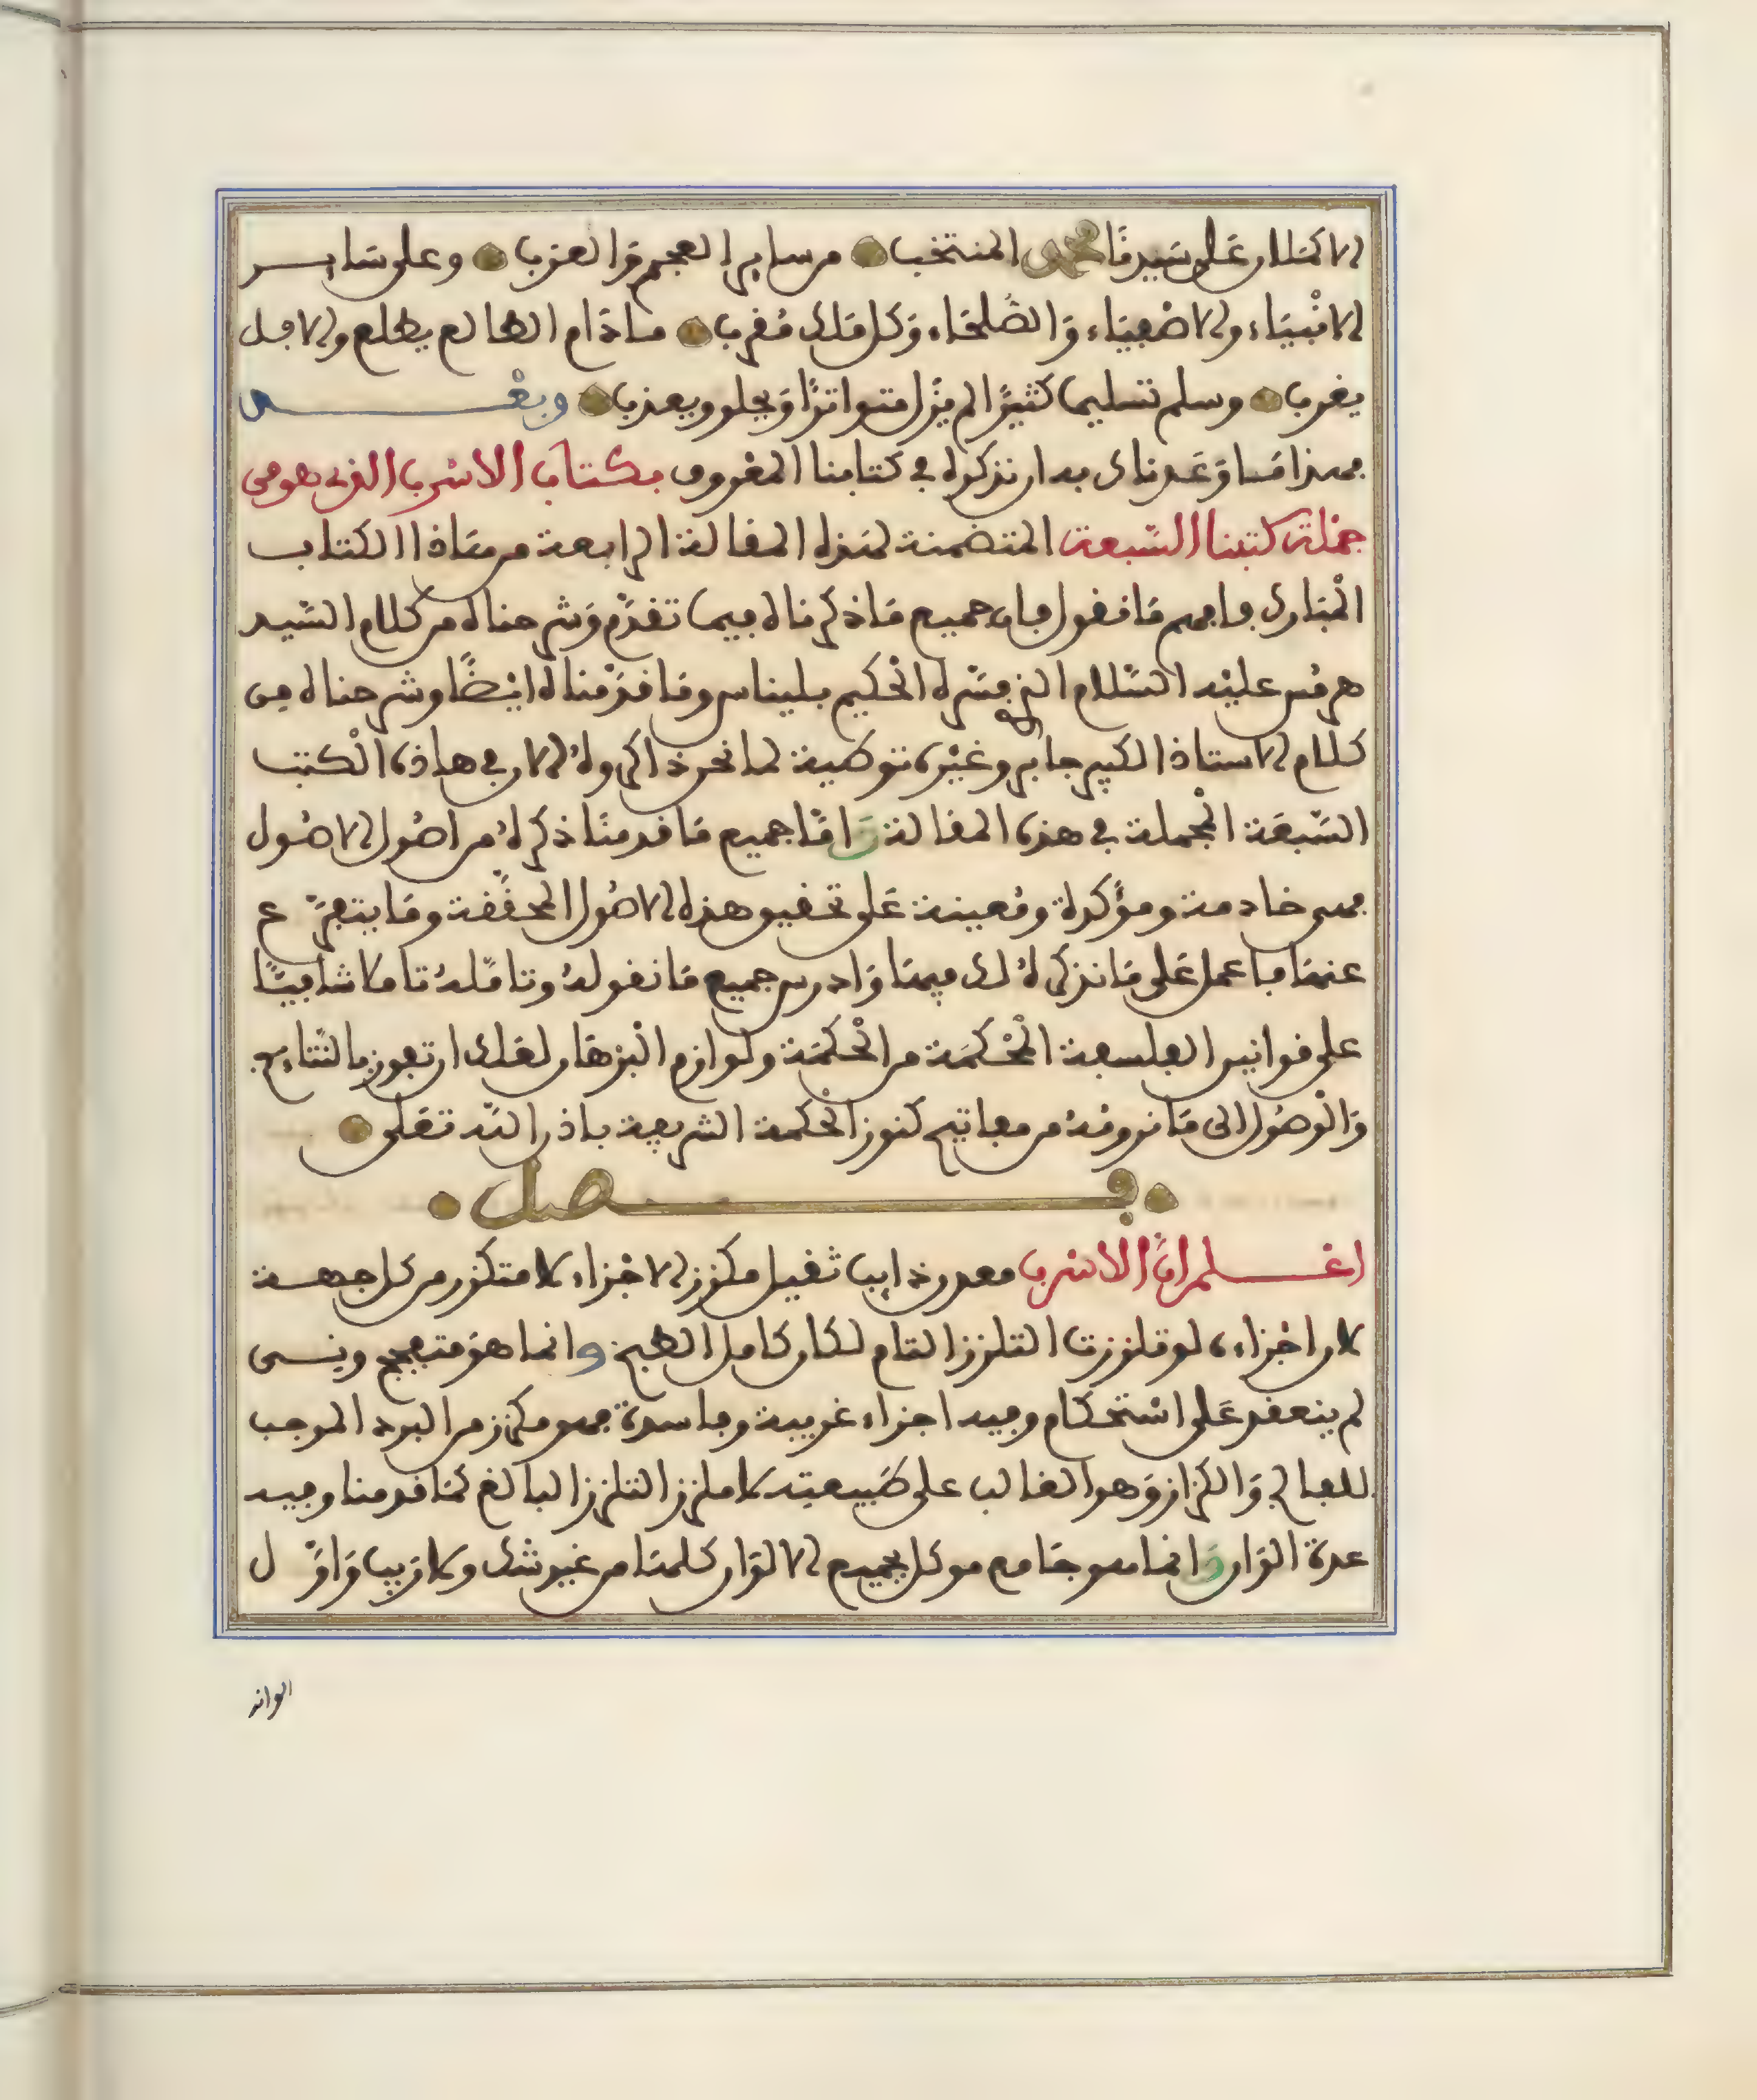 الاكملان على سيدنا محمد المنتخب من ساير العجم والعرب وعلى ساير
الانبياء والاصفياء والصلحاء وكل ملك مقرب ما دام الطالع يطلع والافل
يغرب وسلم تسليما كثيرا لم يزل متواترا ويحلو ويعذب وبعد
فهذا ما وعدناك به ان نذكره في كتابنا المعروف بكتاب الاسرب الذي هو من
جملة كتبنا السبعة المتضمنة لهذه المقالة الرابعة من هاذا الكتاب
المبارك فافهم ما نقول فان جميع ما ذكرناه فيما تقدم وشرحناه من كلام السيد
هرمس عليه السلام الذي فسره الحكيم بليناس وما قدمناه ايضا وشرحناه من
كلام الاستاذ الكبير جابر وغيره توطية لما نحن ذاكروه الان في هاذه الكتب
السبعة المجملة في هذه المقالة واما جميع ما قدمنا ذكره من اصول الاصول
فهي خادمة ومؤكدة ومعينة على تحقيق هذه الاصول المحققة وما يتفرع
عنها فاعمل على ما نذكره لك فيها وادرس جميع ما نقوله وتامله تاملا شافيا
على قوانين الفلسفة المحكمة من الحكمة ولوازم البرهان لعلك ان تفوز بالنتايج
والوصول الى ما نرومه من مفاتيح كنوز الحكمة الشريفة باذن الله تعلى
فصل
اعلم ان الاسرب معدن ذايب ثقيل مكزز الاجزاء لا متكزز من كل جهة
لان اجزاءه لو تلززت التلزز التام لكان كامل الطبخ وانما هو متفجج ونـسى
لم ينعقد على استحكام وفيه اجزاء غريبة وفاسدة فهو مكزز من البرد الموجب
للفالج والكزاز وهو الغالب على طبيعته لا ملزز التلزز البالغ لما قدمنا وفيه
عدة الوان وانما هو جامع موكل بجميع الالوان كلها من غير شك ولا ريب واول
الوانه